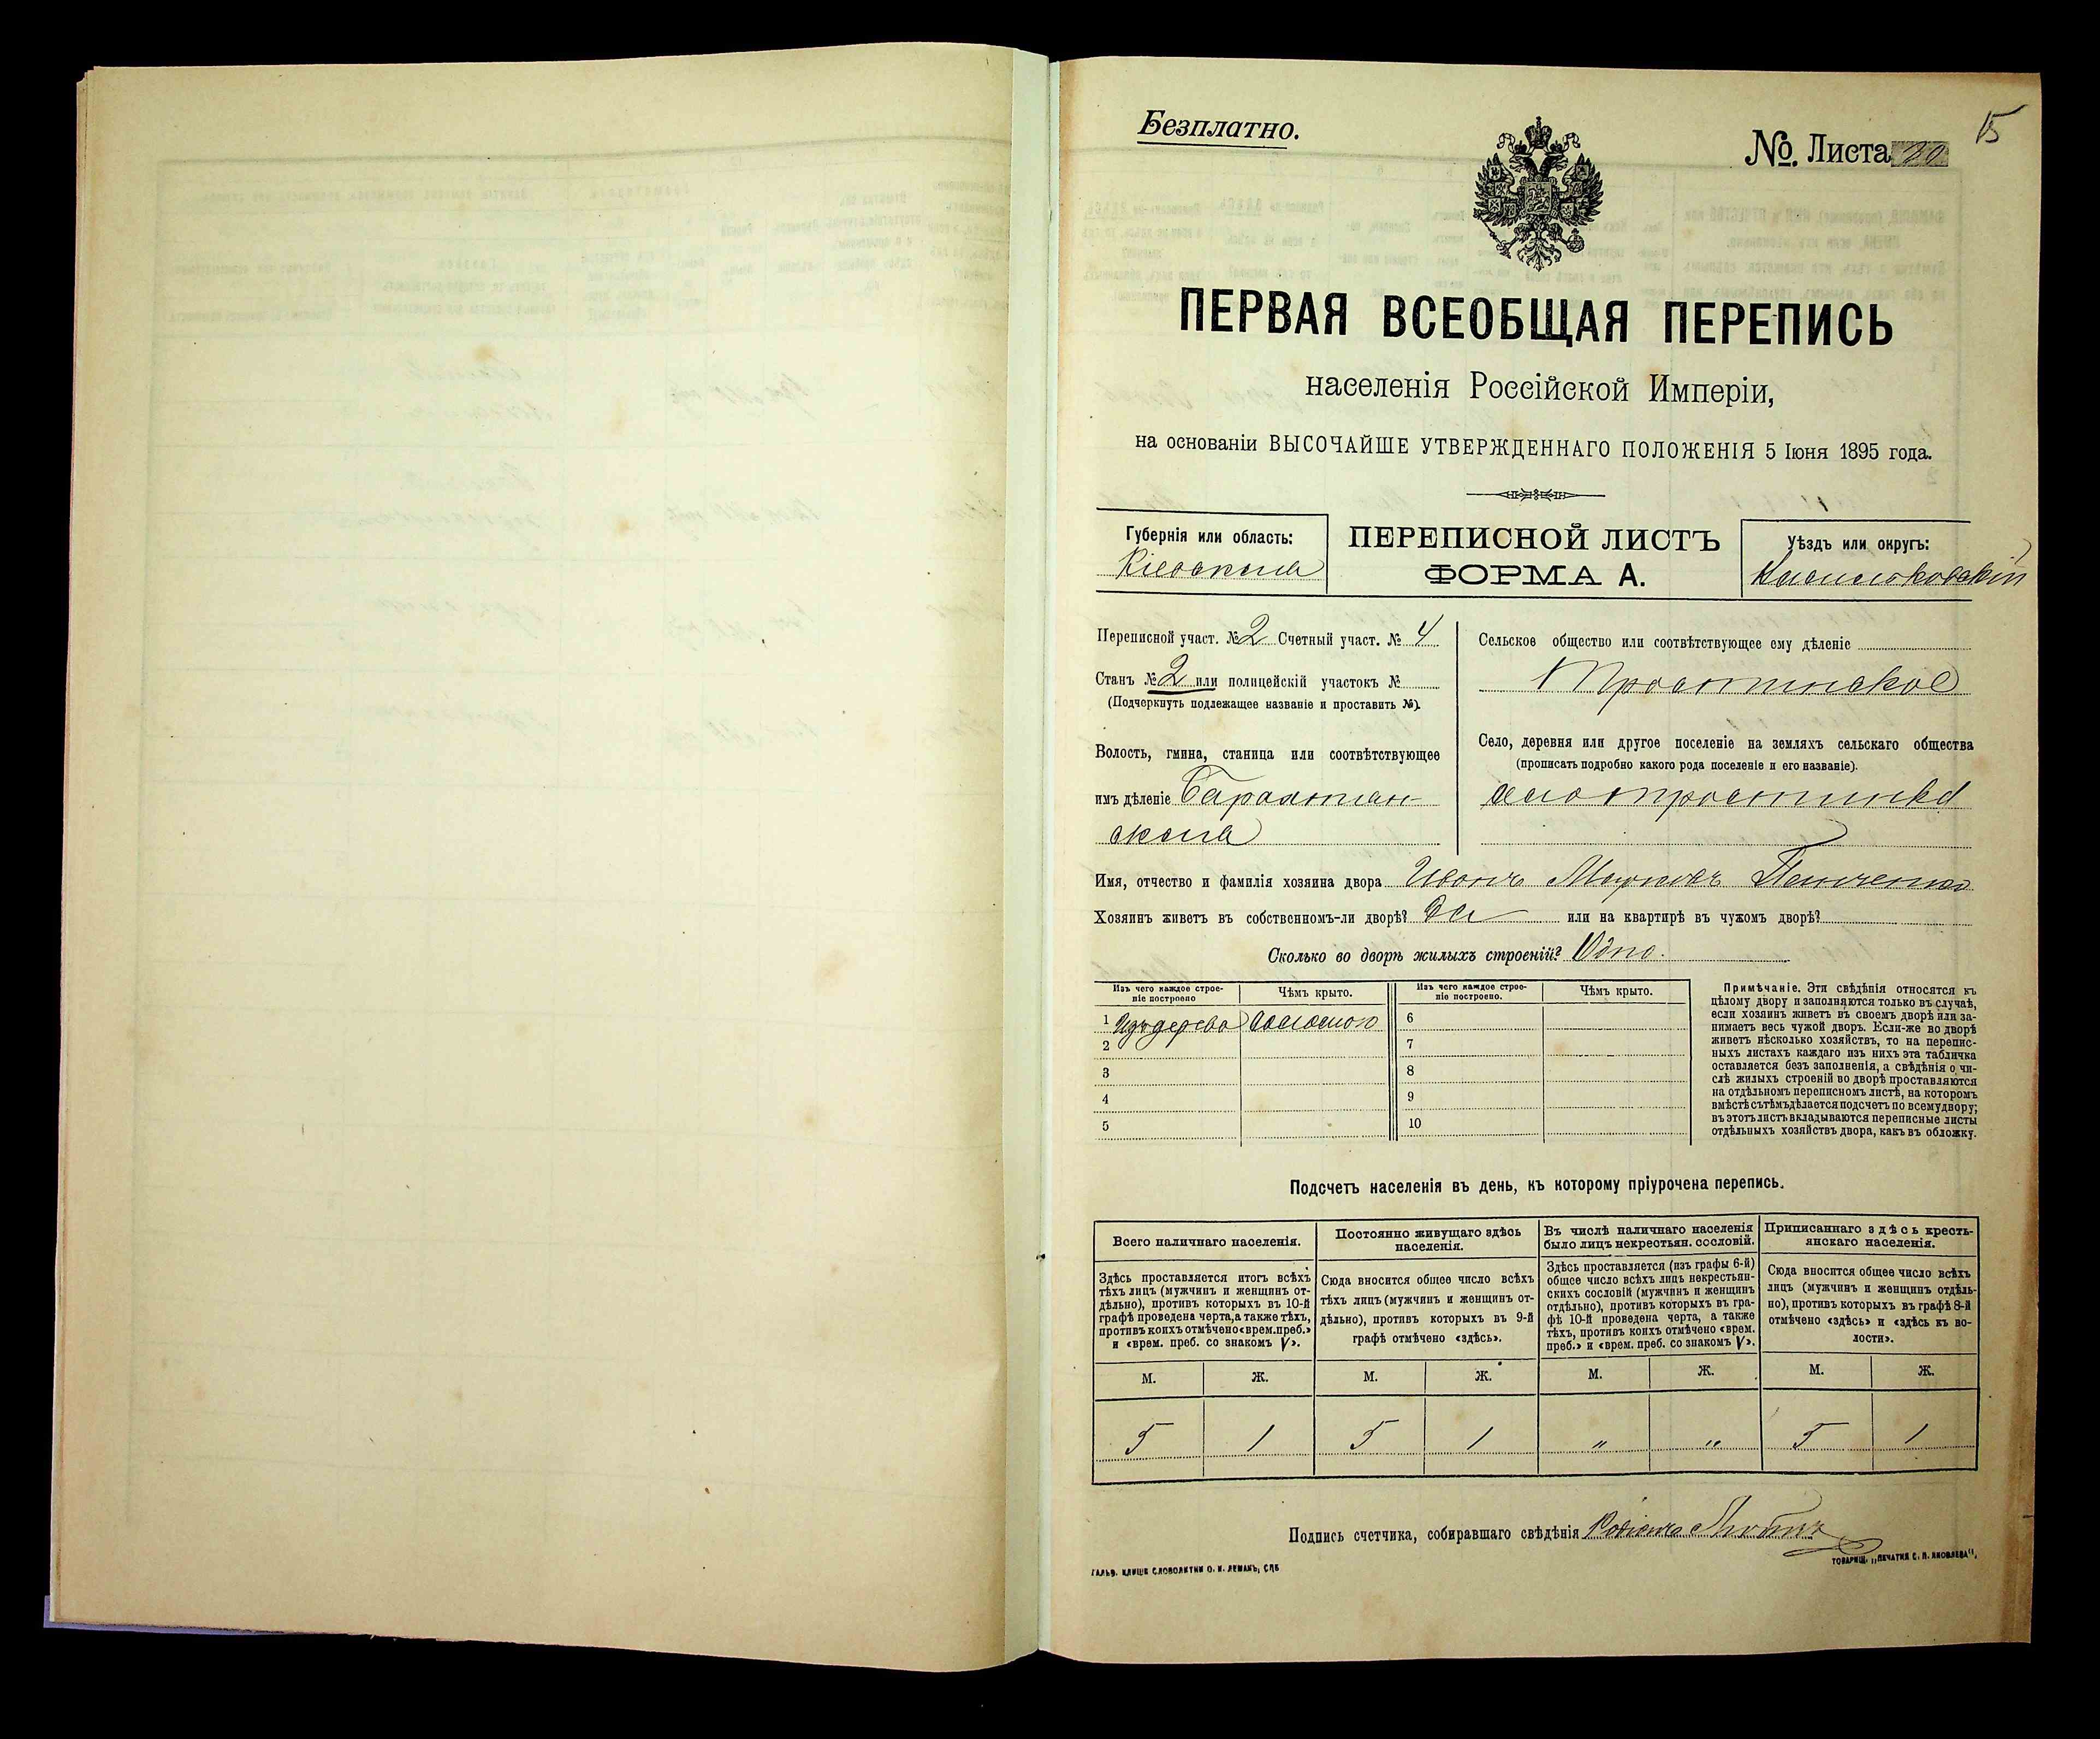 Безплатно.
№. Листа 30
15
ПЕРВАЯ ВСЕОБЩАЯ ПЕРЕПИСЬ
населенія Россійской Имперіи,
на основаніи ВЫСОЧАЙШЕ УТВЕРЖДЕННАГО ПОЛОЖЕНІЯ 5 Іюня 1895 года.
Губернія или область:
Кіевская
ПЕРЕПИСНОЙ ЛИСТЪ
ФОРМА А.
Уѣздъ или округъ:
Васильковскій
Переписной участ. № 2 Счетный участ. № 4
Станъ № 2 или полицейскій участокъ №
(Подчеркнуть подлежащее названіе и проставить №).
Волость, гмина, станица или соотвѣтствующее
имъ дѣленіе Барахтян-
ская
Сельское общество или соотвѣтствующее ему дѣленіе
Тростинское
Село, деревня или другое поселеніе на земляхъ сельскаго общества
(прописать подробно какого рода поселеніе и его названіе).
село Тростинка
Имя, отчество и фамилія хозяина двора Иванъ Марковъ
Хозяинъ живетъ въ собственномъ-ли дворѣ? Да или на квартирѣ въ чужомъ дворѣ?
Сколько во дворѣ жилыхъ строеній? Одно.
Изъ чего каждое строе-
ніе построено
Чѣмъ крыто.
Изъ чего каждое строе-
ніе построено.
Чѣмъ крыто.
1 Изъ дерева соломою
2
3
4
5
6
7
8
9
10
Примѣчаніе. Эти свѣдѣнія относятся къ
цѣлому двору и заполняются только въ случаѣ,
если хозяинъ живетъ въ своемъ дворѣ или за-
нимаетъ весь чужой дворъ. Если-же во дворѣ
живетъ нѣсколько хозяйствъ, то на перепис-
ныхъ листахъ каждаго изъ нихъ эта табличка
оставляется безъ заполненія, а свѣдѣнія о чи-
слѣ жилыхъ строеній во дворѣ проставляются
на отдѣльномъ переписномъ листѣ, на которомъ
вмѣстѣ съ тѣмъ дѣлается подсчетъ по всему двору;
въ этотъ листъ вкладываются переписные листы
отдѣльныхъ хозяйствъ двора, какъ въ обложку.
Подсчетъ населенія въ день, къ которому пріурочена перепись.
Всего наличнаго населенія.
Здѣсь проставляется итогъ всѣхъ
тѣхъ лицъ (мужчинъ и женщинъ от-
дѣльно), противъ которыхъ въ 10-й
графѣ проведена черта, а также тѣхъ,
противъ коихъ отмѣчено «врем. преб.»
и «врем. преб. со знакомъ V».
Постоянно живущаго здѣсь
населенія.
Сюда вносится общее число всѣхъ
тѣхъ лицъ (мужчинъ и женщинъ от-
дѣльно), противъ которыхъ въ 9-й
графѣ отмѣчено «здѣсь».
Въ числѣ наличнаго населенія
было лицъ некрестьян. сословій.
Здѣсь проставляется (изъ графы 6-й)
общее число всѣхъ лицъ некрестьян-
скихъ сословій (мужчинъ и женщинъ
отдѣльно), противъ которыхъ въ гра-
фѣ 10-й проведена черта, а также
тѣхъ, противъ коихъ отмѣчено «врем.
преб.» и «врем. преб. со знакомъ V».
Приписаннаго здѣсь кресть-
янскаго населенія.
Сюда вносится общее число всѣхъ
лицъ (мужчинъ и женщинъ отдѣль-
но), противъ которыхъ въ графѣ 8-й
отмѣчено «здѣсь» и «здѣсь къ во-
лости».
М. Ж. М. Ж. М. Ж. М. Ж.
5 1 5 1 " " 5 1
Подпись счетчика, собиравшаго свѣдѣнія Родіонъ
ГАЛЬВ. КЛИШЕ СЛОВОЛИТНИ О. И. ЛЕМАНЪ, СПБ
ТОВАРИЩ. „ПЕЧАТНЯ С. П. ЯКОВЛЕВА".